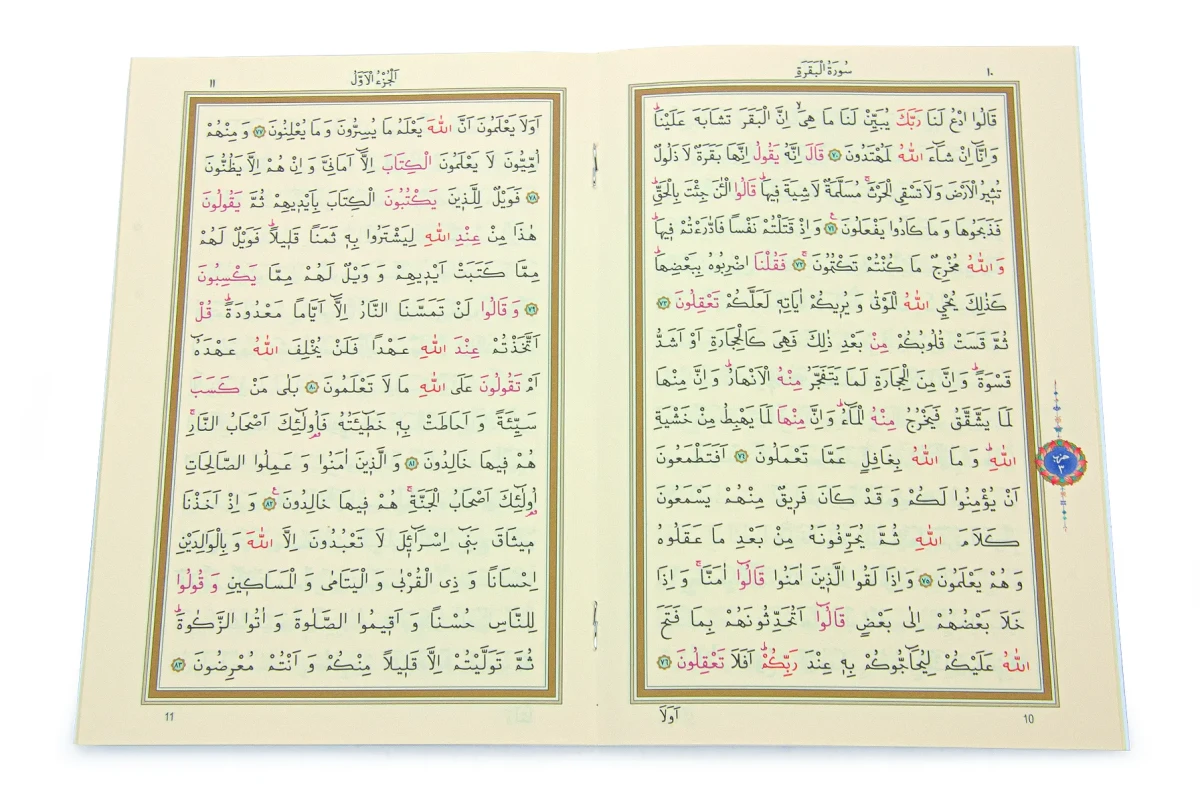 ١٠
سُورَةُ الْبَقَرَةِ
قَالُوا ادْعُ لَنَا رَبَّكَ يُبَيِّنْ لَنَا مَا هِىَۙ اِنَّ الْبَقَرَ تَشَابَهَ عَلَيْنَاۜ
وَاِنَّٓا اِنْ شَٓاءَ اللّٰهُ لَمُهْتَدُونَ ﴿٧٠﴾ قَالَ اِنَّهُ يَقُولُ اِنَّهَا بَقَرَةٌ لَا ذَلُولٌ
تُثِيرُ الْاَرْضَ وَلَا تَسْقِى الْحَرْثَۚ مُسَلَّمَةٌ لَا شِيَةَ فِيهَاۜ قَالُوا الْـٰٔنَ جِئْتَ بِالْحَقِّۜ
فَذَبَحُوهَا وَمَا كَادُوا يَفْعَلُونَ۟ ﴿٧١﴾ وَاِذْ قَتَلْتُمْ نَفْسًا فَادّٰرَءْتُمْ فِيهَاۜ
وَاللّٰهُ مُخْرِجٌ مَا كُنْتُمْ تَكْتُمُونَۚ ﴿٧٢﴾ فَقُلْنَا اضْرِبُوهُ بِبَعْضِهَاۜ
كَذٰلِكَ يُحْيِ اللّٰهُ الْمَوْتٰى وَيُرِيكُمْ اٰيَاتِهٖ لَعَلَّكُمْ تَعْقِلُونَ ﴿٧٣﴾
ثُمَّ قَسَتْ قُلُوبُكُمْ مِنْ بَعْدِ ذٰلِكَ فَهِىَ كَالْحِجَارَةِ اَوْ اَشَدُّ
قَسْوَةًۜ وَاِنَّ مِنَ الْحِجَارَةِ لَمَا يَتَفَجَّرُ مِنْهُ الْاَنْهَارُۜ وَاِنَّ مِنْهَا
لَمَا يَشَّقَّقُ فَيَخْرُجُ مِنْهُ الْمَٓاءُۜ وَاِنَّ مِنْهَا لَمَا يَهْبِطُ مِنْ خَشْيَةِ
اللّٰهِۜ وَمَا اللّٰهُ بِغَافِلٍ عَمَّا تَعْمَلُونَ ﴿٧٤﴾ اَفَتَطْمَعُونَ
اَنْ يُؤْمِنُوا لَكُمْ وَقَدْ كَانَ فَرِيقٌ مِنْهُمْ يَسْمَعُونَ
كَلَامَ اللّٰهِ ثُمَّ يُحَرِّفُونَهُ مِنْ بَعْدِ مَا عَقَلُوهُ
وَهُمْ يَعْلَمُونَ ﴿٧٥﴾ وَاِذَا لَقُوا الَّذِينَ اٰمَنُوا قَالُٓوا اٰمَنَّاۚ وَاِذَا
خَلَا بَعْضُهُمْ اِلٰى بَعْضٍ قَالُٓوا اَتُحَدِّثُونَهُمْ بِمَا فَتَحَ
اللّٰهُ عَلَيْكُمْ لِيُحَٓاجُّوكُمْ بِهٖ عِنْدَ رَبِّكُمْۜ اَفَلَا تَعْقِلُونَ ﴿٧٦﴾
حزب
٣
اَوَلَا
10
اَلْجُزْءُ الْاَوَّلُ
١١
اَوَلَا يَعْلَمُونَ اَنَّ اللّٰهَ يَعْلَمُ مَا يُسِرُّونَ وَمَا يُعْلِنُونَ ﴿٧٧﴾ وَمِنْهُمْ
اُمِّيُّونَ لَا يَعْلَمُونَ الْكِتَابَ اِلَّٓا اَمَانِىَّ وَاِنْ هُمْ اِلَّا يَظُنُّونَ
﴿٧٨﴾ فَوَيْلٌ لِلَّذِينَ يَكْتُبُونَ الْكِتَابَ بِاَيْدِيهِمْ ثُمَّ يَقُولُونَ
هٰذَا مِنْ عِنْدِ اللّٰهِ لِيَشْتَرُوا بِهٖ ثَمَنًا قَلِيلًاۜ فَوَيْلٌ لَهُمْ
مِمَّا كَتَبَتْ اَيْدِيهِمْ وَوَيْلٌ لَهُمْ مِمَّا يَكْسِبُونَ
﴿٧٩﴾ وَقَالُوا لَنْ تَمَسَّنَا النَّارُ اِلَّٓا اَيَّامًا مَعْدُودَةًۜ قُلْ
اَتَّخَذْتُمْ عِنْدَ اللّٰهِ عَهْدًا فَلَنْ يُخْلِفَ اللّٰهُ عَهْدَهُٓ
اَمْ تَقُولُونَ عَلَى اللّٰهِ مَا لَا تَعْلَمُونَ ﴿٨٠﴾ بَلٰى مَنْ كَسَبَ
سَيِّئَةً وَاَحَاطَتْ بِهٖ خَطِٓيـَٔتُهُ فَاُو۬لٰٓئِكَ اَصْحَابُ النَّارِۚ
هُمْ فِيهَا خَالِدُونَ ﴿٨١﴾ وَالَّذِينَ اٰمَنُوا وَعَمِلُوا الصَّالِحَاتِ
اُو۬لٰٓئِكَ اَصْحَابُ الْجَنَّةِۚ هُمْ فِيهَا خَالِدُونَ۟ ﴿٨٢﴾ وَاِذْ اَخَذْنَا
مِيثَاقَ بَنٖٓى اِسْرَٓائِلَ لَا تَعْبُدُونَ اِلَّا اللّٰهَ وَبِالْوَالِدَيْنِ
اِحْسَانًا وَذِى الْقُرْبٰى وَالْيَتَامٰى وَالْمَسَاكِينِ وَقُولُوا
لِلنَّاسِ حُسْنًا وَاَقِيمُوا الصَّلٰوةَ وَاٰتُوا الزَّكٰوةَۜ
ثُمَّ تَوَلَّيْتُمْ اِلَّا قَلِيلًا مِنْكُمْ وَاَنْتُمْ مُعْرِضُونَ ﴿٨٣﴾
11